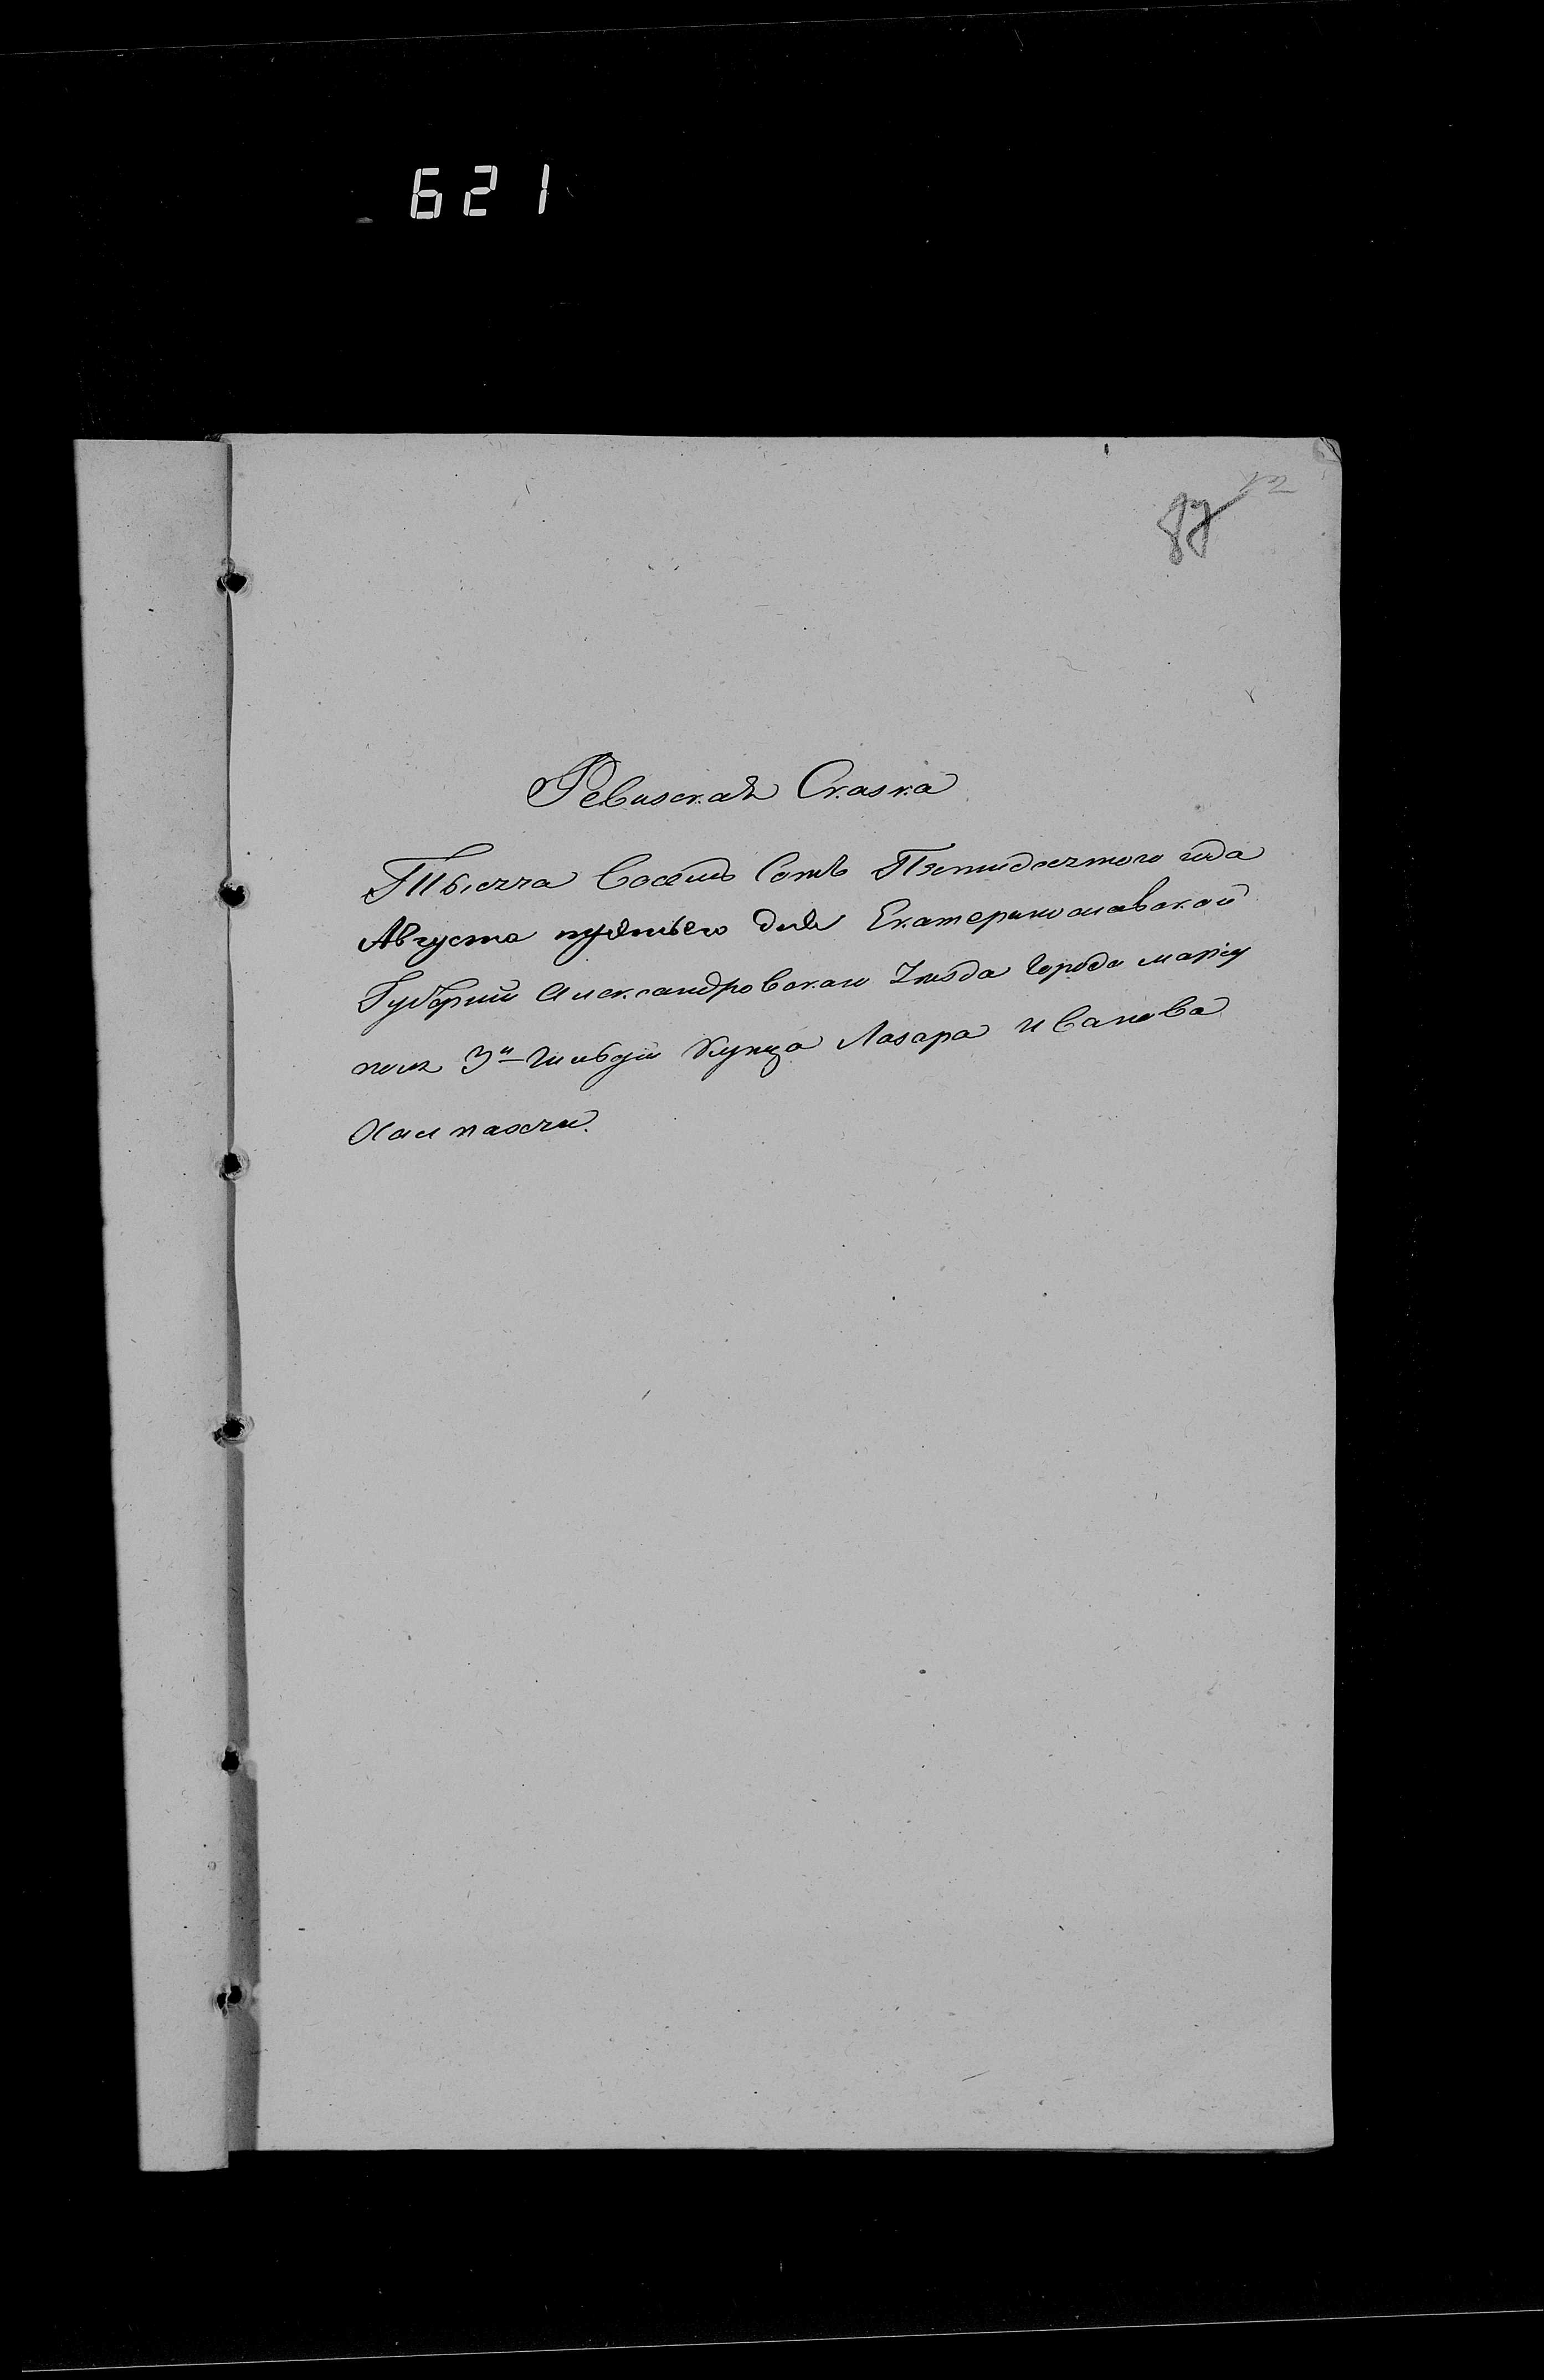 621
87
Ревизская Сказка
Тысяча Восемь Сотъ Пятидесятого года
Августа дня Екатеринославской
Губернии Александровскаго Уезда Города Марiу
поля 3й Гильдiи Купца Лазара Иванова
Халпахчи.